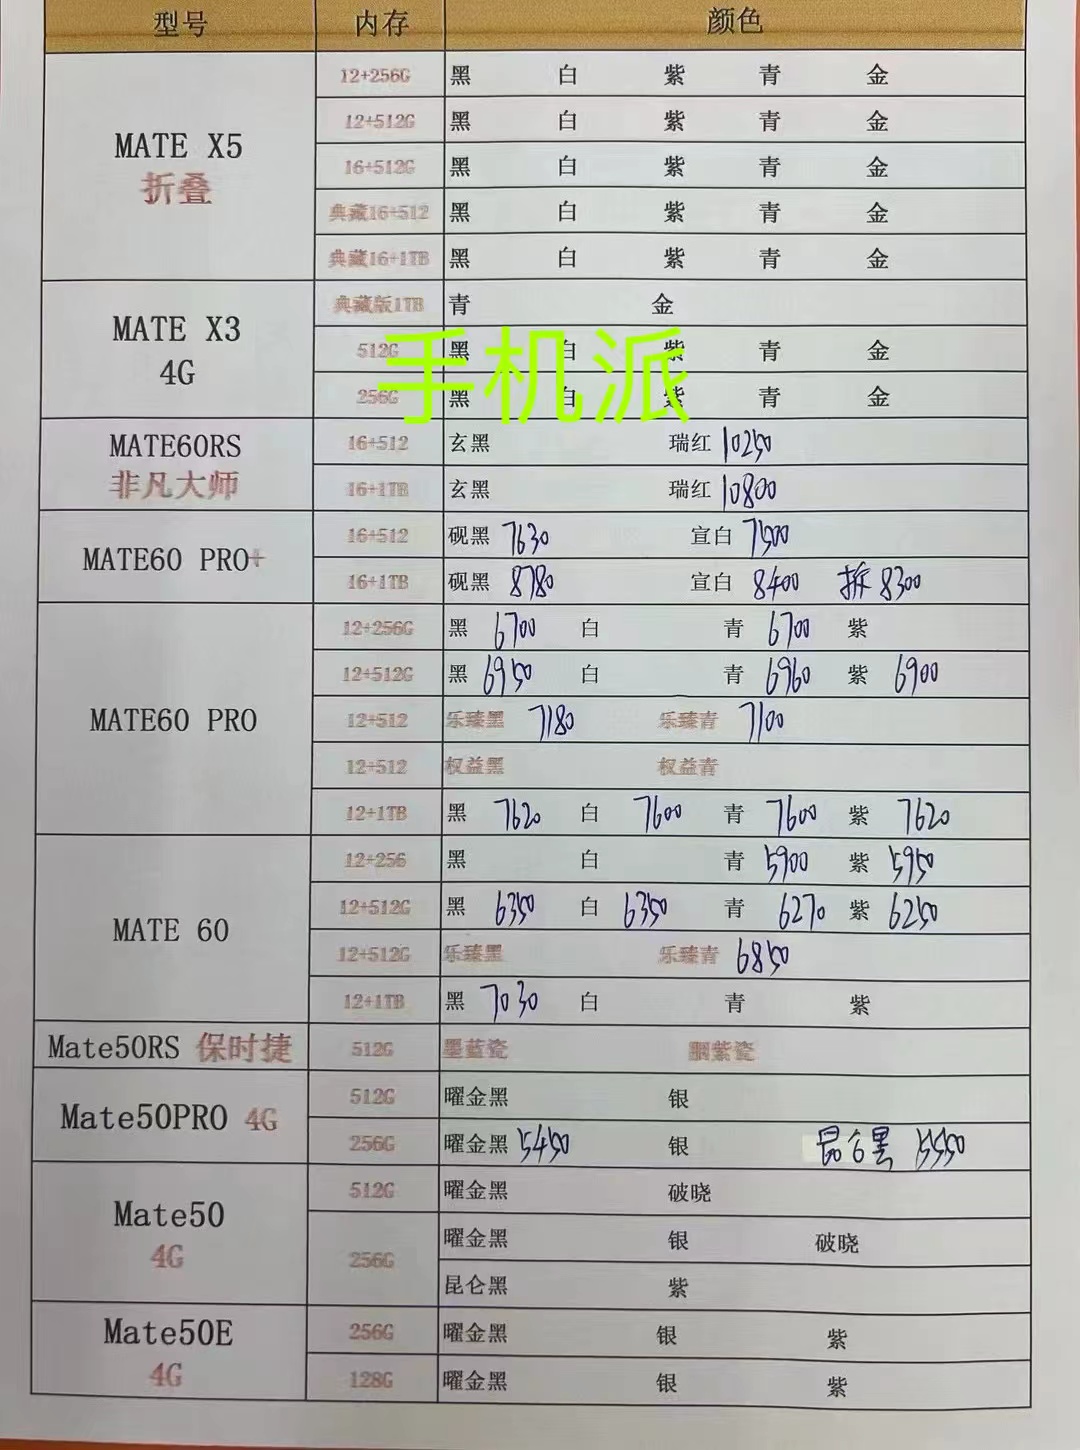 型号 内存 颜色
MATE X5 折叠
12+256G 黑 白 紫 青 金
12+512G 黑 白 紫 青 金
16+512G 黑 白 紫 青 金
典藏16+512 黑 白 紫 青 金
典藏16+1TB 黑 白 紫 青 金
MATE X3 4G
典藏版1TB 青 金
512G 黑 白 紫 青 金
手机派
256G 黑 白 紫 青 金
MATE60RS 非凡大师
16+512 玄黑 瑞红 10250
16+1TB 玄黑 瑞红 10800
MATE60 PRO+
16+512 砚黑 7630 宣白 7500
16+1TB 砚黑 8780 宣白 8400 拆 8300
MATE60 PRO
12+256G 黑 6700 白 青 6700 紫
12+512G 黑 6950 白 青 6960 紫 6900
12+512 乐臻黑 7180 乐臻青 7100
12+512 权益黑 权益青
12+1TB 黑 7620 白 7600 青 7600 紫 7620
MATE 60
12+256 黑 白 青 5900 紫 5950
12+512G 黑 6350 白 6350 青 6270 紫 6250
12+512G 乐臻黑 乐臻青 6850
12+1TB 黑 7030 白 青 紫
Mate50RS 保时捷 512G 墨蓝瓷 胭紫瓷
Mate50PRO 4G
512G 曜金黑 银
256G 曜金黑 5450 银 昆仑黑 5550
Mate50 4G
512G 曜金黑 破晓
256G 曜金黑 银 破晓
昆仑黑 紫
Mate50E 4G
256G 曜金黑 银 紫
128G 曜金黑 银 紫